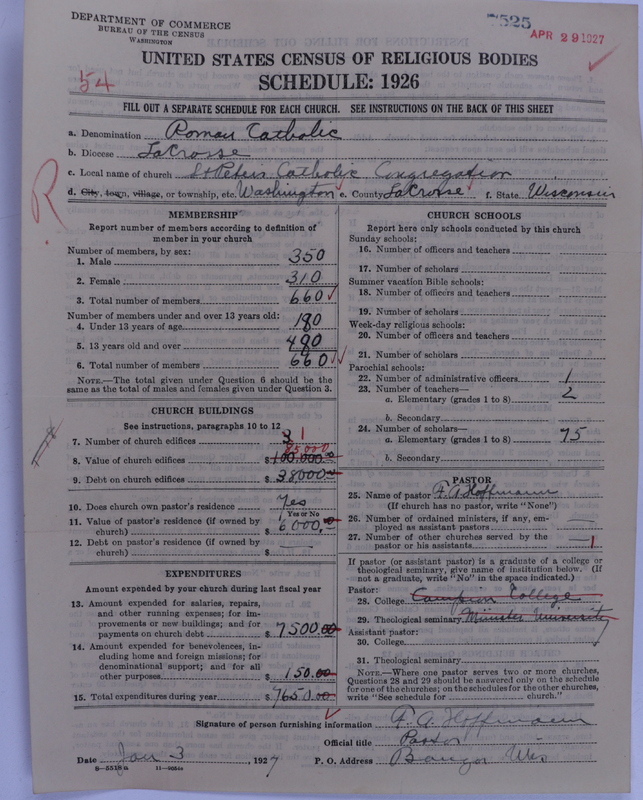 DEPARTMENT OF COMMERCE
BUREAU OF THE CENSUS
WASHINGTON
7525
APR 29 1927
UNITED STATES CENSUS OF RELIGIOUS BODIES
54
SCHEDULE: 1926
FILL OUT A SEPARATE SCHEDULE FOR EACH CHURCH. SEE INSTRUCTIONS ON THE BACK OF THIS SHEET
a. Denomination Roman Catholic
b. Diocese LaCrosse
c. Local name of church St Peters Catholic Congregation
d. City, town, village, or township, etc. Washington e. County LaCrosse f. State Wisconsin
R
MEMBERSHIP
Report number of members according to definition of
member in your church
Number of members, by sex:
1. Male 350
2. Female 310
3. Total number of members 660
Number of members under and over 13 years old:
4. Under 13 years of age 180
5. 13 years old and over 480
6. Total number of members 660
NOTE.—The total given under Question 6 should be the
same as the total of males and females given under Question 3.
CHURCH BUILDINGS
See instructions, paragraphs 10 to 12
7. Number of church edifices 3 1
8. Value of church edifices $100,000.00
9. Debt on church edifices $38000
10. Does church own pastor's residence Yes
Yes or No
11. Value of pastor's residence (if owned by
church) $6000,
12. Debt on pastor's residence (if owned by
church) $ —
EXPENDITURES
Amount expended by your church during last fiscal year
13. Amount expended for salaries, repairs,
and other running expenses; for im-
provements or new buildings; and for
payments on church debt $7500.00
14. Amount expended for benevolences, in-
cluding home and foreign missions; for
denominational support; and for all
other purposes $150.00
15. Total expenditures during year $7650.00
CHURCH SCHOOLS
Report here only schools conducted by this church
Sunday schools:
16. Number of officers and teachers
17. Number of scholars
Summer vacation Bible schools:
18. Number of officers and teachers
19. Number of scholars
Week-day religious schools:
20. Number of officers and teachers
21. Number of scholars
Parochial schools:
22. Number of administrative officers 1
23. Number of teachers—
a. Elementary (grades 1 to 8) 2
b. Secondary
24. Number of scholars—
a. Elementary (grades 1 to 8) 75
b. Secondary
PASTOR
25. Name of pastor F. A. Hoffmann
(If church has no pastor, write "None")
26. Number of ordained ministers, if any, em-
ployed as assistant pastors —
27. Number of other churches served by the
pastor or his assistants 1
If pastor (or assistant pastor) is a graduate of a college or
theological seminary, give name of institution below. (If
not a graduate, write "No" in the space indicated.)
Pastor:
28. College Campion College
29. Theological seminary Minister University
Assistant pastor:
30. College
31. Theological seminary
NOTE.—Where one pastor serves two or more churches,
Questions 28 and 29 should be answered only on the schedule
for one of the churches; on the schedules for the other churches,
write "See schedule for church."
Signature of person furnishing information F. A. Hoffmann
Official title Pastor
Date Jan 3, 1927 P. O. Address Bangor Wis
8—5518a 11—9054a